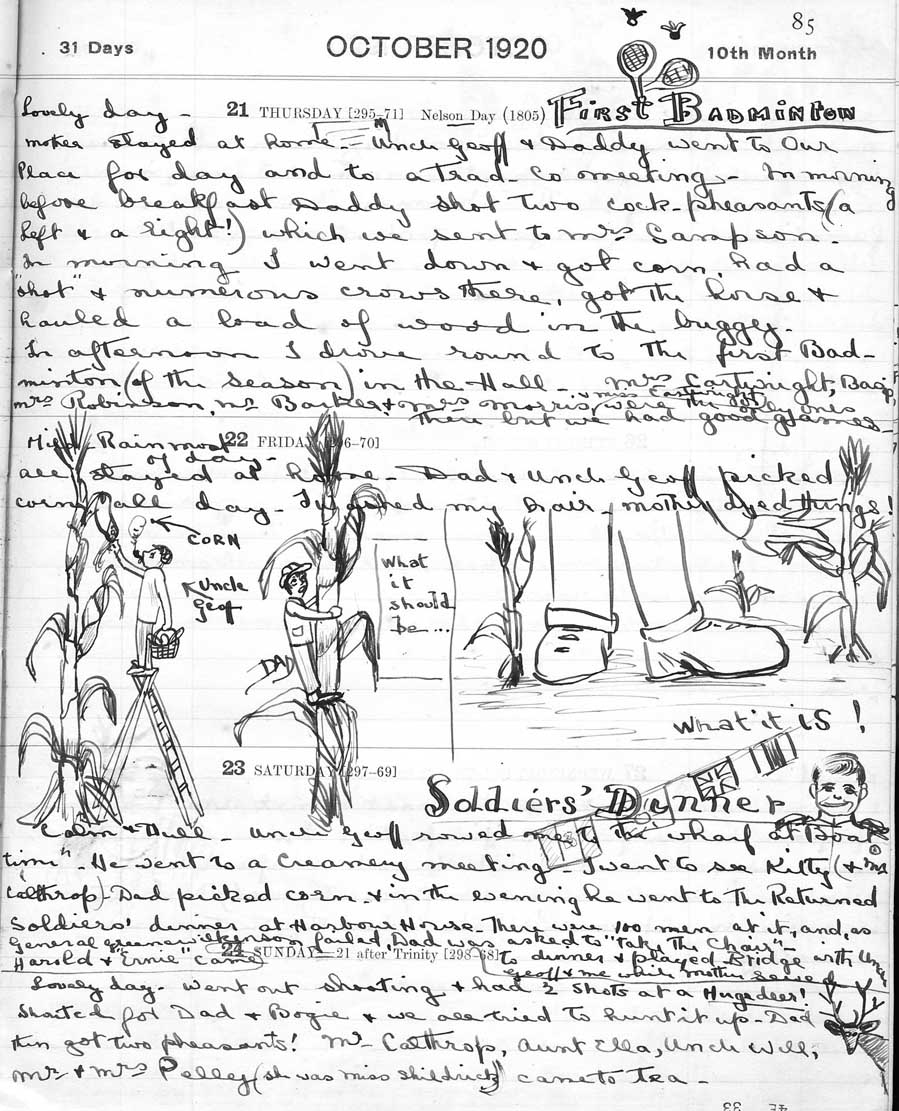 85
31 Days OCTOBER 1920 10th Month
21 THURSDAY [295-71] Nelson Day (1805) FIRST BADMINTON
Lovely day -
mother stayed at home - Uncle Geoff & Daddy went to Our
Place for day and to a Trad-Co meeting - In morning
before breakfast Daddy shot two cock-pheasants (a
left & a right!) which we sent to Mrs Sampson.
In morning I went down & got corn, had a
"shot" & numerous crows there, got the horse &
hauled a load of wood in the buggy.
In afternoon I drove round to the first Bad-
minton (of the season) in the Hall - Mrs Cartwright,
& miss Cartwright
Mrs Robinson, Mr Barker & Mrs Morris, were the only ones
there but we had good games -
22 FRIDAY [296-70]
Mild - Rain most
of day -
all stayed at home - Dad & Uncle Geoff picked
corn all day - I washed my hair - mother dyed things!
CORN
Uncle
Geof
DAD
What
it
should
be ...
What it is !
23 SATURDAY [297-69]
Soldiers' Dinner
Calm & Dull - Uncle Geoff rowed me to the wharf at "Boat
time" - He went to a Creamery meeting - I went to see Kitty (& Mrs
Calthrop) - Dad picked corn & in the evening he went to the Returned
Soldiers' dinner at Harbour House - There were 100 men at it, and, as
General Greenwilkinson failed, Dad was asked to "take the Chair" -
Harold & "Ernie" came
to dinner & played Bridge with Uncle
Geoff & me while mother sewed
24 SUNDAY - 21 after Trinity [298-68]
Lovely day - Went out shooting & had 2 shots at a Huge deer!
Shouted for Dad & Bogie & we all tried to hunt it up - Dad
then got two pheasants! Mr Calthrop, Aunt Ella, Uncle Will,
Mr & Mrs Pelley (she was miss Shildrick) came to tea -